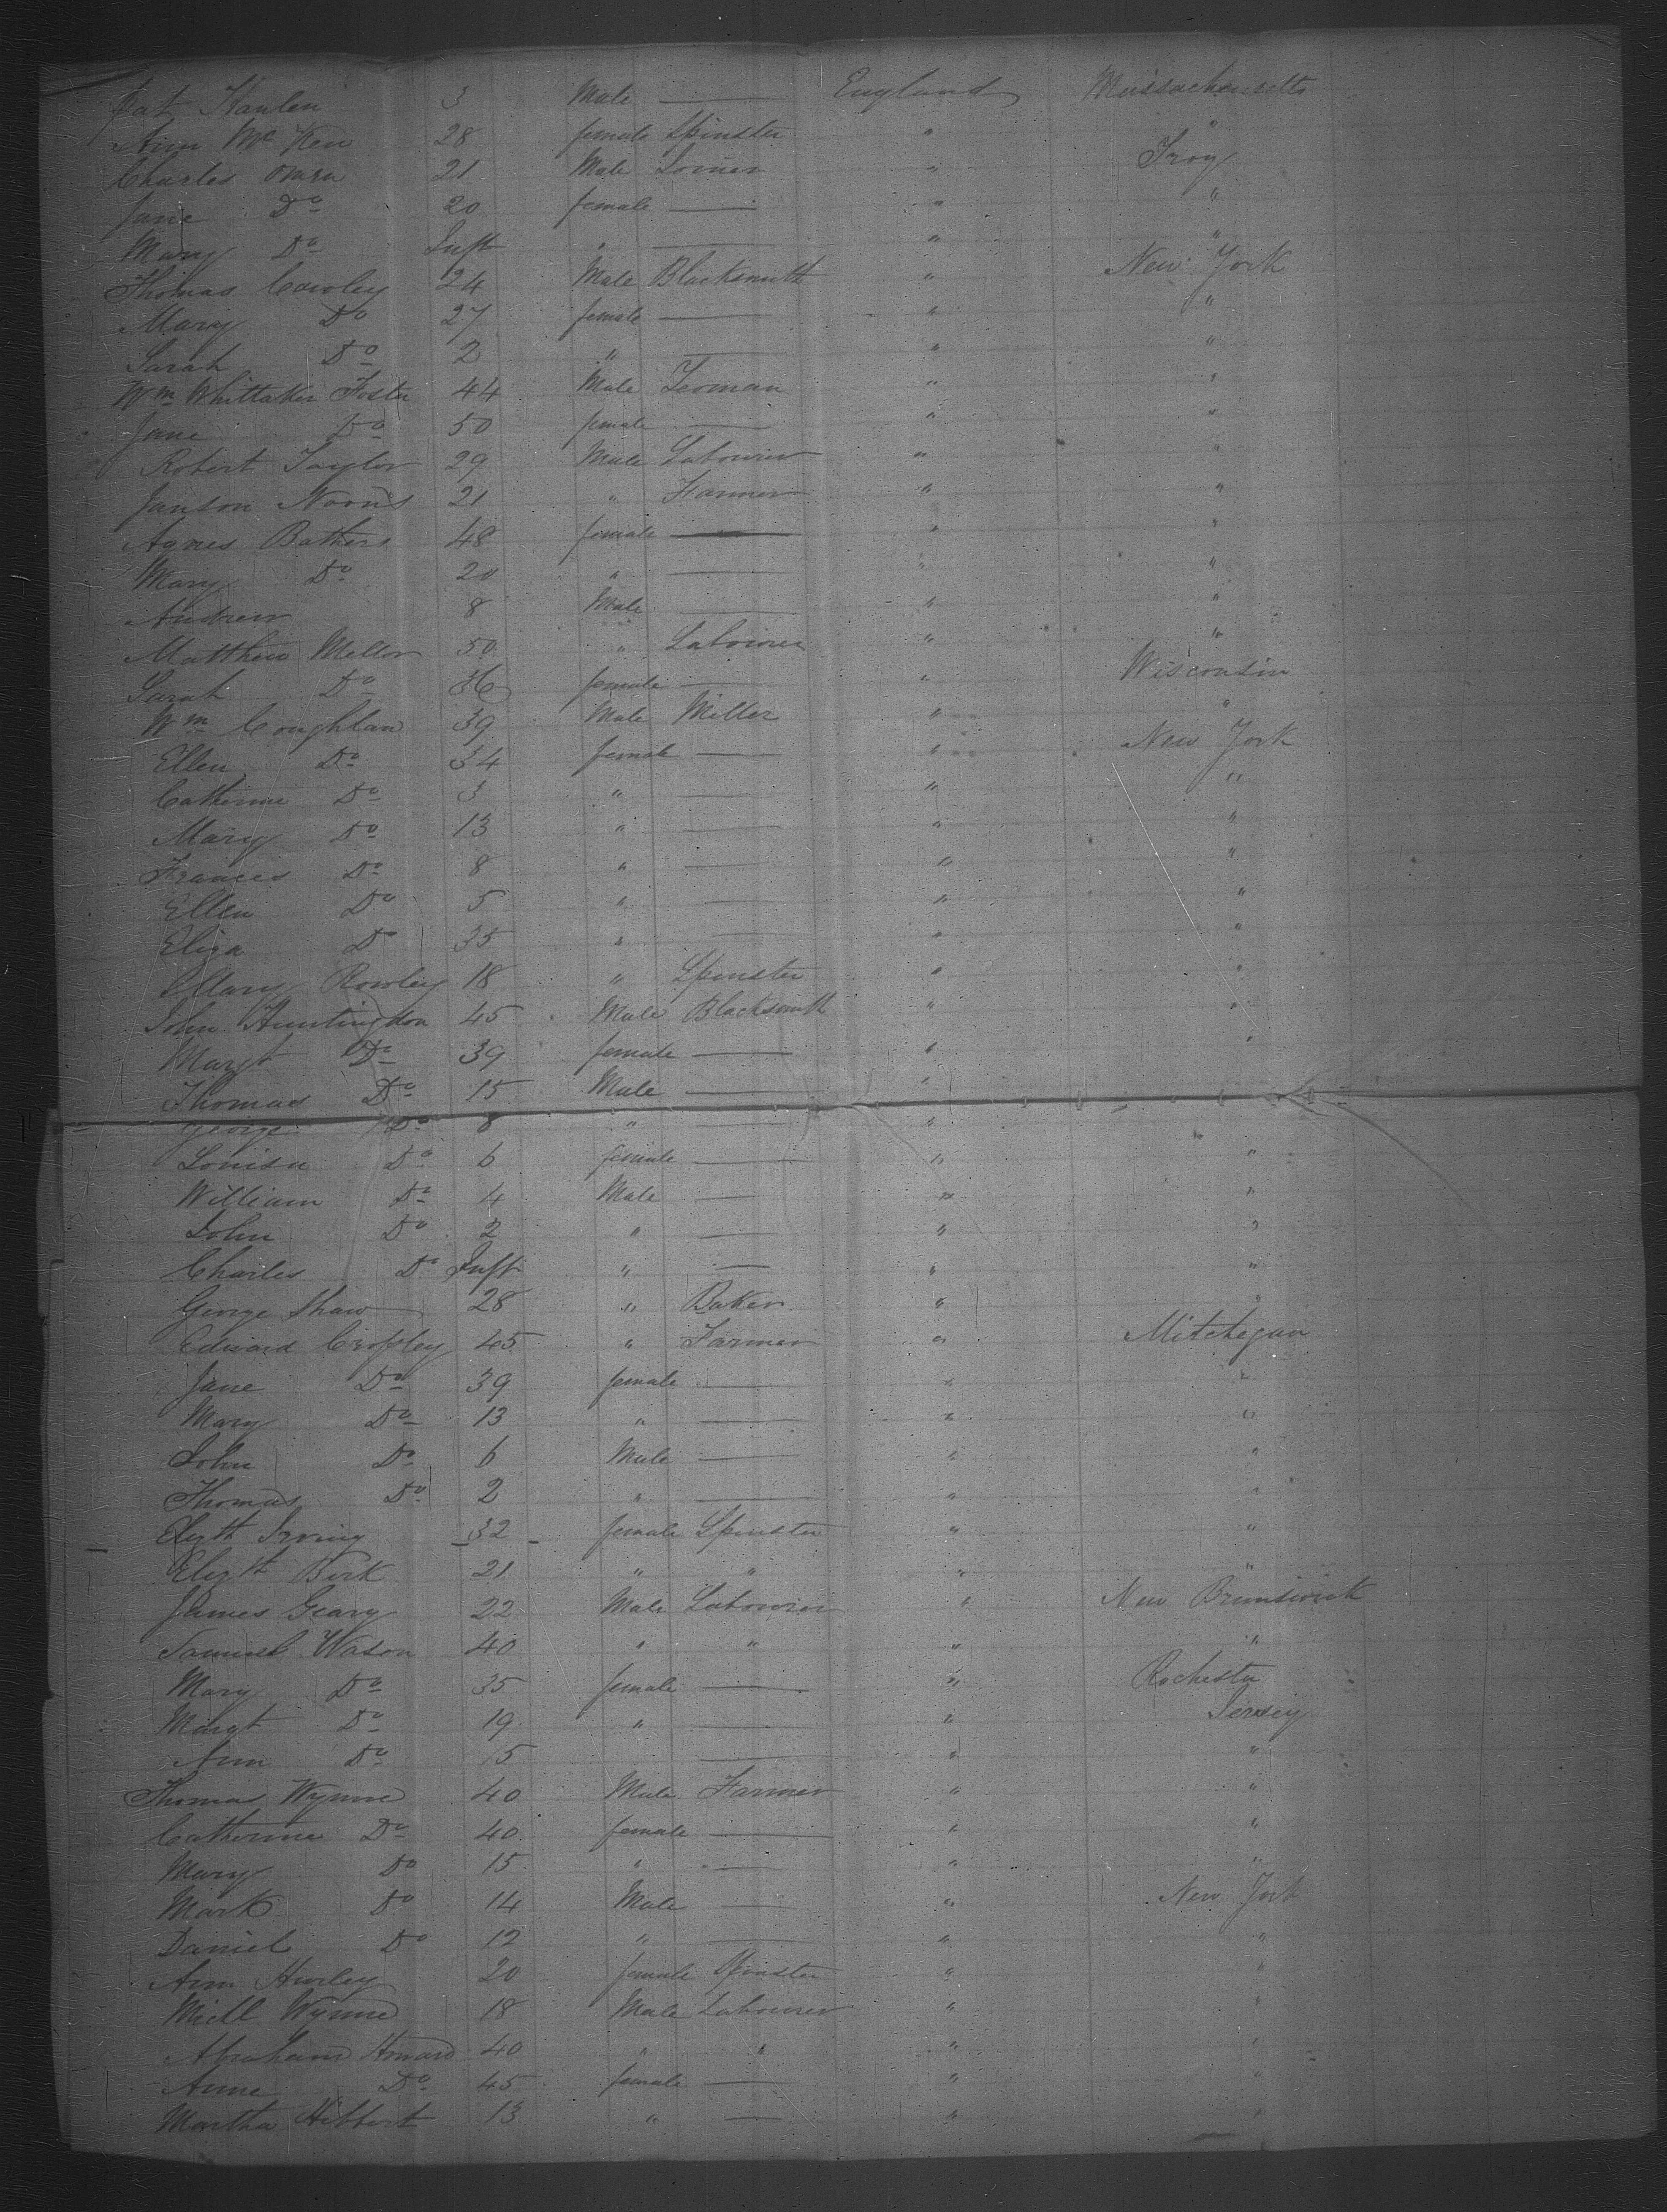 Pat Hanlen 3 Male — England Massachusetts
Ann Mc Ken 28 female Spinster " "
Charles Omra 21 Male Joiner " Troy
Jane Do 20 female — " "
Mary Do Inft " — " "
Thomas Cowley 24 Male Blacksmith " New York
Mary Do 27 female — " "
Sarah Do 2 " — " "
Wm Whittaker Foster 44 Male Yeoman " "
Jane Do 50 female — " "
Robert Taylor 29 Male Labourer " "
Janson Norris 21 " Farmer " "
Agnes Bathers 48 female — " "
Mary Do 20 " — " "
Andrew 8 Male — " "
Matthew Mellor 50 " Labourer " "
Sarah Do 36 female — " Wisconsin
Wm Coughlan 39 Male Miller " "
Ellen Do 34 female — " New York
Catherine Do 3 " — " "
Mary Do 13 " — " "
Frances Do 8 " — " "
Ellen Do 5 " — " "
Eliza Do 35 " — " "
Mary Rowley 18 " Spinster " "
John Huntingdon 45 Male Blacksmith " "
Margt Do 39 female — " "
Thomas Do 15 Male — "
George Do 8 " — "
Louisa Do 6 female — " "
William Do 4 Male — " "
John Do 2 " — " "
Charles Do Inft " — " "
George Shaw 28 " Baker " "
Edward Cropley 45 " Farmer " Mitchegan
Jane Do 39 female — " "
Mary Do 13 " — " "
John Do 6 Male — " "
Thomas Do 2 " — " "
Elizth Irving 32 female Spinster " "
Elizth Birk 21 " " " "
James Geary 22 Male Labourer " New Brunswick
Samuel Wason 40 " " " "
Mary Do 35 female — " Rochester
Margt Do 19 " — " Jersey
Ann Do 15 — " "
Thomas Wynne 40 Male Farmer " "
Catherine Do 40 female — " "
Mary Do 15 " — " "
Mark Do 14 Male — " New York
Daniel Do 12 " — " "
Ann Hurley 20 female Spinster " "
Michl Wynne 18 Male Labourer " "
Abraham Howard 40 " " " "
Anne Do 45 female — " "
Martha Hibbert 13 " — " "